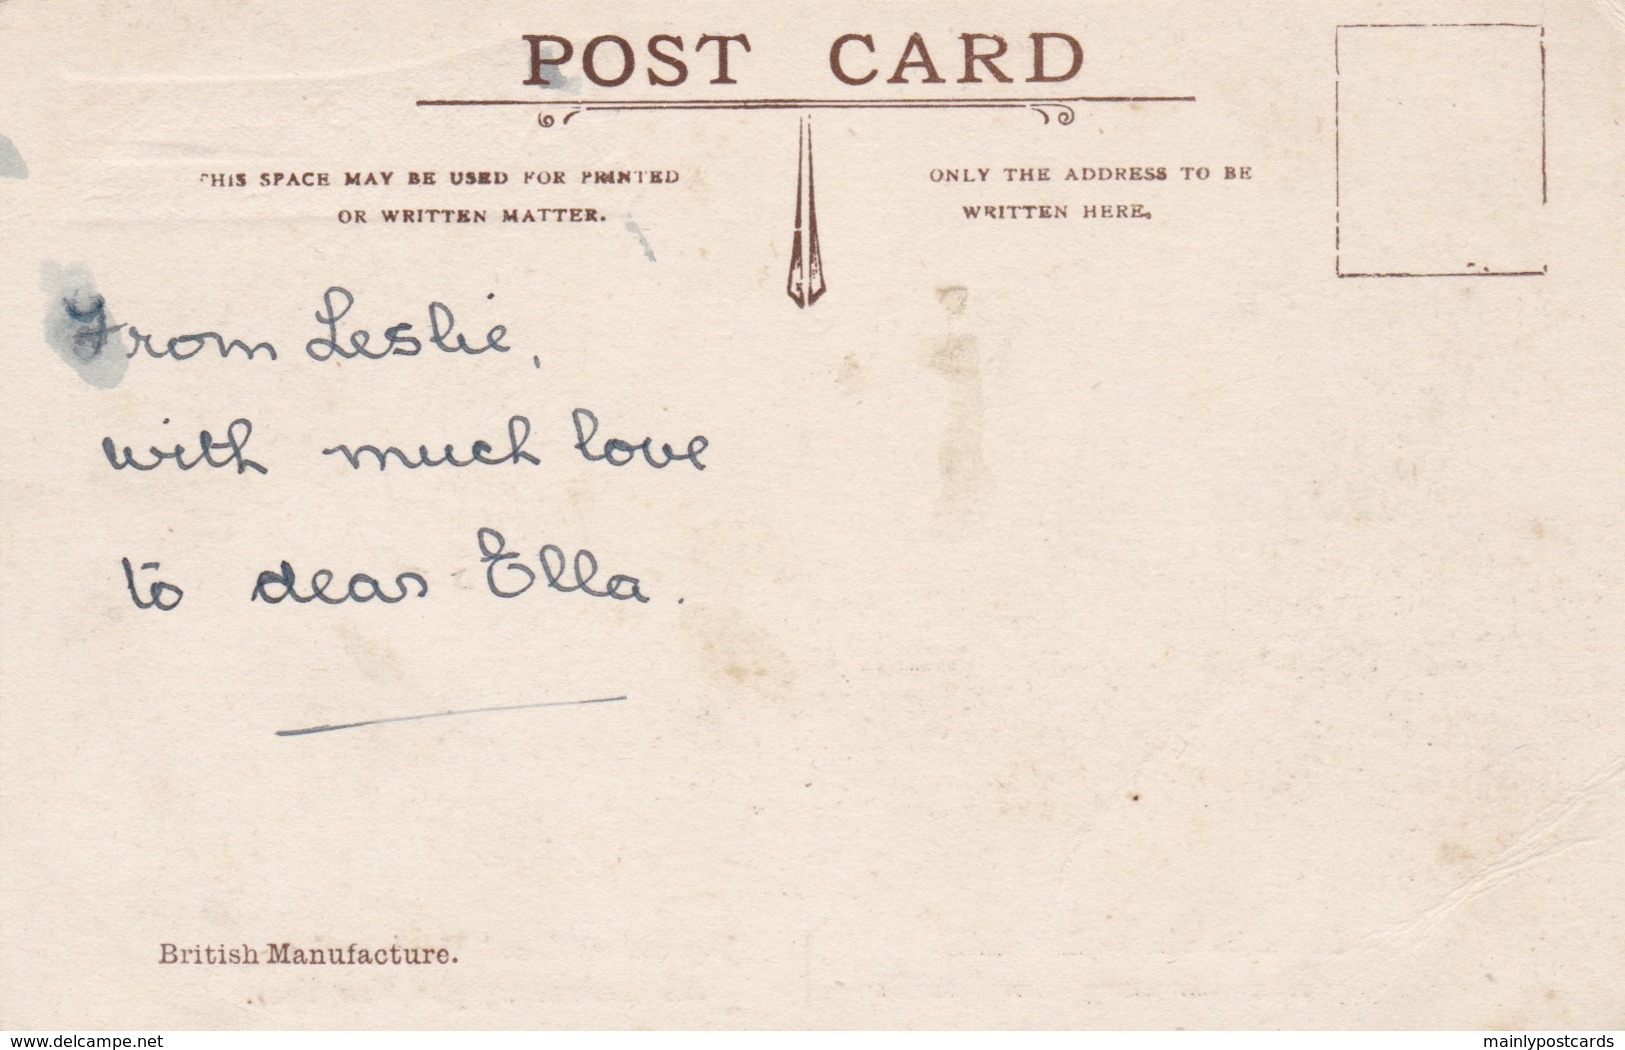 POST CARD
THIS SPACE MAY BE USED FOR PRINTED
OR WRITTEN MATTER.
ONLY THE ADDRESS TO BE
WRITTEN HERE.
From Leslie,
with much love
to dear Ella.
British Manufacture.
www.delcampe.net
mainlypostcards